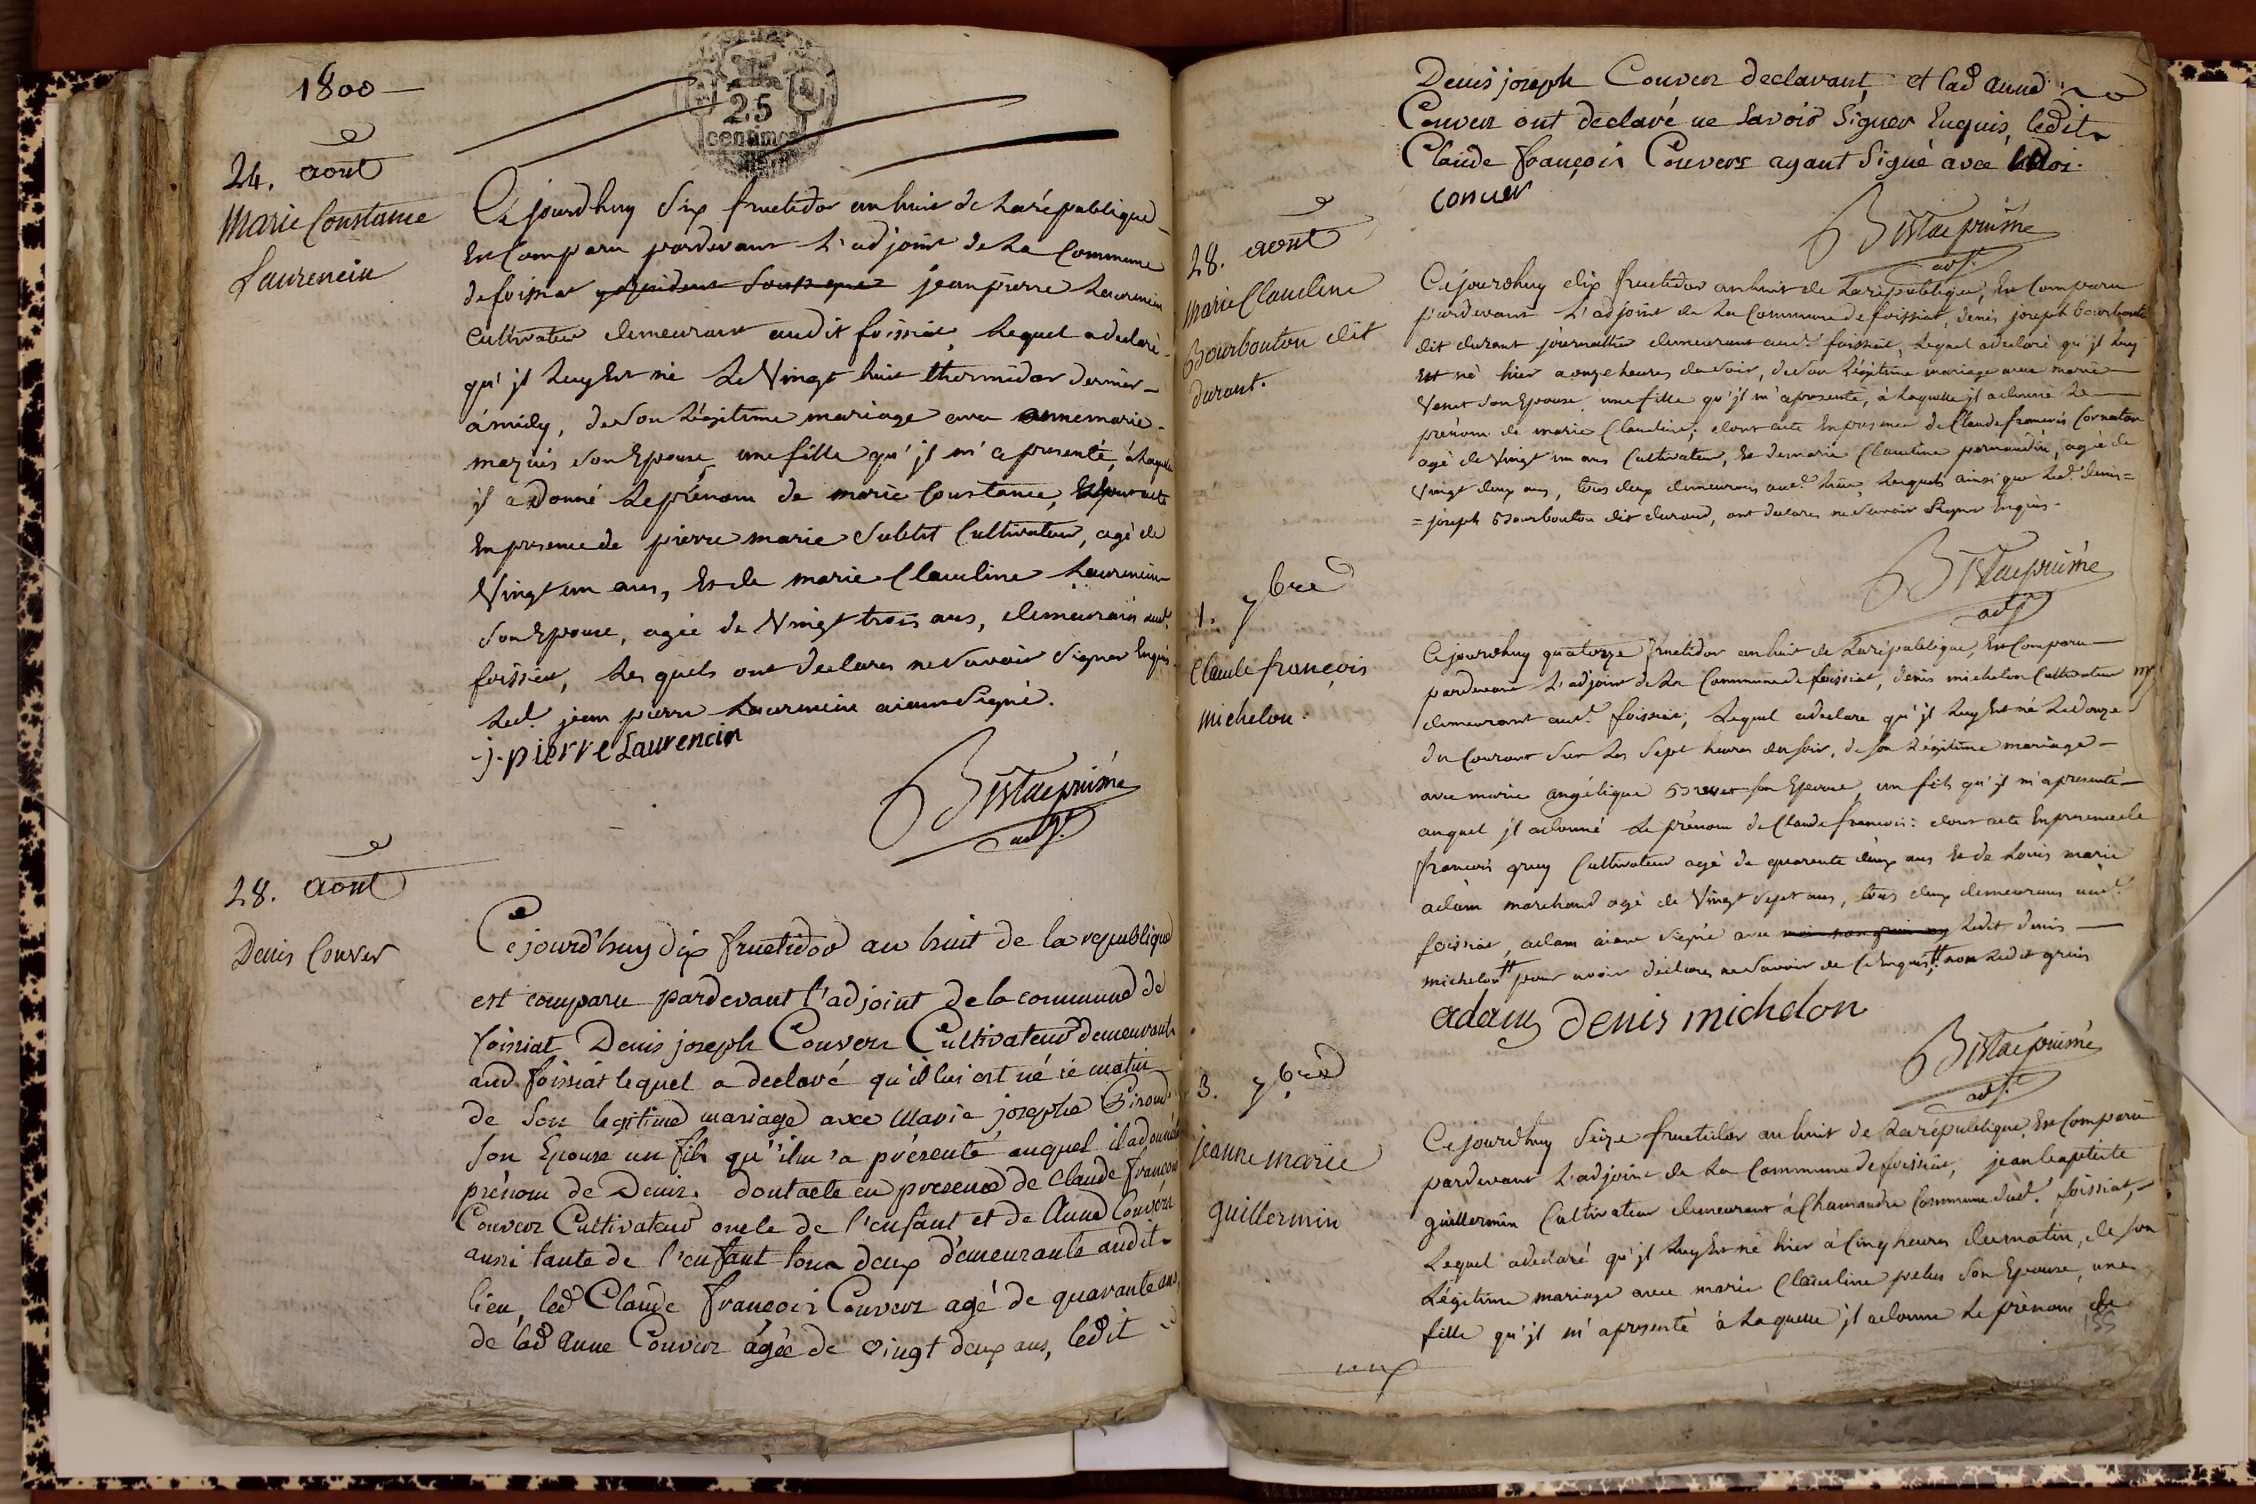 1800
25
centimes
24. aout
Marie Constance
Laurencin
Ce jourd'huy Six fructidor an huit de La république
Est Comparu pardevant L'adjoint de La Commune
de foissiat jean pierre Laurencin
Cultivateur demeurant audit foissiat, Lequel a declaré
qu'jl Luy Est né Le Vingt huit thermidor dernier
à midy, de Son Légitime mariage avec anne marie
mazuis Son Epouse une fille qu'jl m'a presenté, à Laquelle
jl a Donné Le prénom de marie Constance, dont acte
En presence de pierre marie Sublet Cultivateur, agé de
Vingt un ans, Et de marie Claudine Laurencin
Son Epouse, agée de Vingt trois ans, demeurans aud.
foissiat, Les quels ont declarés ne Savoir Signer Enquis
Led. jean pierre Laurencin aiant Signé.
j. pierre Laurencin
adj.
28. aout
Denis Couver
Ce jourd'huy dix fructidor an huit de la republique
est comparu pardevant l'adjoint de la commune de
foissiat Denis joseph Couver Cultivateur demeurant
aud foissiat lequel a declaré qu'il lui est né ce matin
de Son legitime mariage avec Marie josephe Giroud
Son Epouse un fils qu'il m'a présenté auquel il a donné le
prénom de Denis. dont acte en presence de Claude francois
Couver Cultivateur oncle de l'enfant et de Anne Couver
aussi tante de l'enfant tous deux demeurants audit
lieu, led Claude françois Couver agé de quarante ans,
de lad anne Couver agée de vingt deux ans, ledit
Denis joseph Couver declarant et lad anne
Couver ont declaré ne Savoir Signer Enquis, ledit
Claude françois Couver ayant Signé avec moi.
couver
adj.
28. aout
Marie Claudine
Bourbouton dit
durant.
Ce jourd'huy dix fructidor an huit de La république, Est Comparu
pardevant L'adjoint de La Commune de foissiat, denis joseph bourbouton
dit durant journallier demeurant aud. foissiat, Lequel a declaré qu'jl Luy
Est né hier a onze heures du Soir, de Son Légitime mariage avec marie
Venet Son Epouse une fille qu'jl m'a presenté, à Laquelle jl a donné Le
prénom de marie Claudine; dont acte En presence de Claude francois Cornaton
agé de Vingt un ans Cultivateur, Et de marie Claudine pernaudin, agée de
Vingt deux ans, tous deux demeurans aud. Lieu, Lesquels ainsi que Led. denis=
=joseph Bourbouton dit durand, ont declarés ne Savoir Signer Enquis.
adj.
1. 7bre
Claude françois
michelon.
Ce jourd'huy quatorze fructidor an huit de La république, Est Comparu
pardevant L'adjoint de La Commune de foissiat, denis michelon Cultivateur
demeurant aud. foissiat, Lequel a declaré qu'jl Luy Est né Le douze
du Courant Sur Les Sept heures du Soir, de Son Légitime mariage
avec marie angélique Brevet Son Epouse, un fils qu'jl m'a presenté
auquel jl a donné Le prénom de Claude francois: dont acte En presence de
francois gruy Cultivateur agé de quarente deux ans Et de Louis marie
adam marchand agé de Vingt Sept ans, tous deux demeurans aud.
foissiat, adam aiant Signé avec Ledit denis
michelon pour avoir déclaré ne Savoir de Ce Enquis, non Ledit gruis
adam denis michelon
adj.
3. 7bre
jeanne marie
guillermin
Ce jourd'huy Seize fructidor an huit de La république, Est Comparu
pardevant L'adjoint de La Commune de foissiat, jean baptiste
guillermin Cultivateur demeurant à Chamandre Commune dud. foissiat,
Lequel a declaré qu'jl Luy Est né hier à Cinq heures du matin, de Son
Légitime mariage avec marie Claudine pelus Son Epouse, une
fille qu'jl m'a presenté à Laquelle jl a donné Le prénom de
155